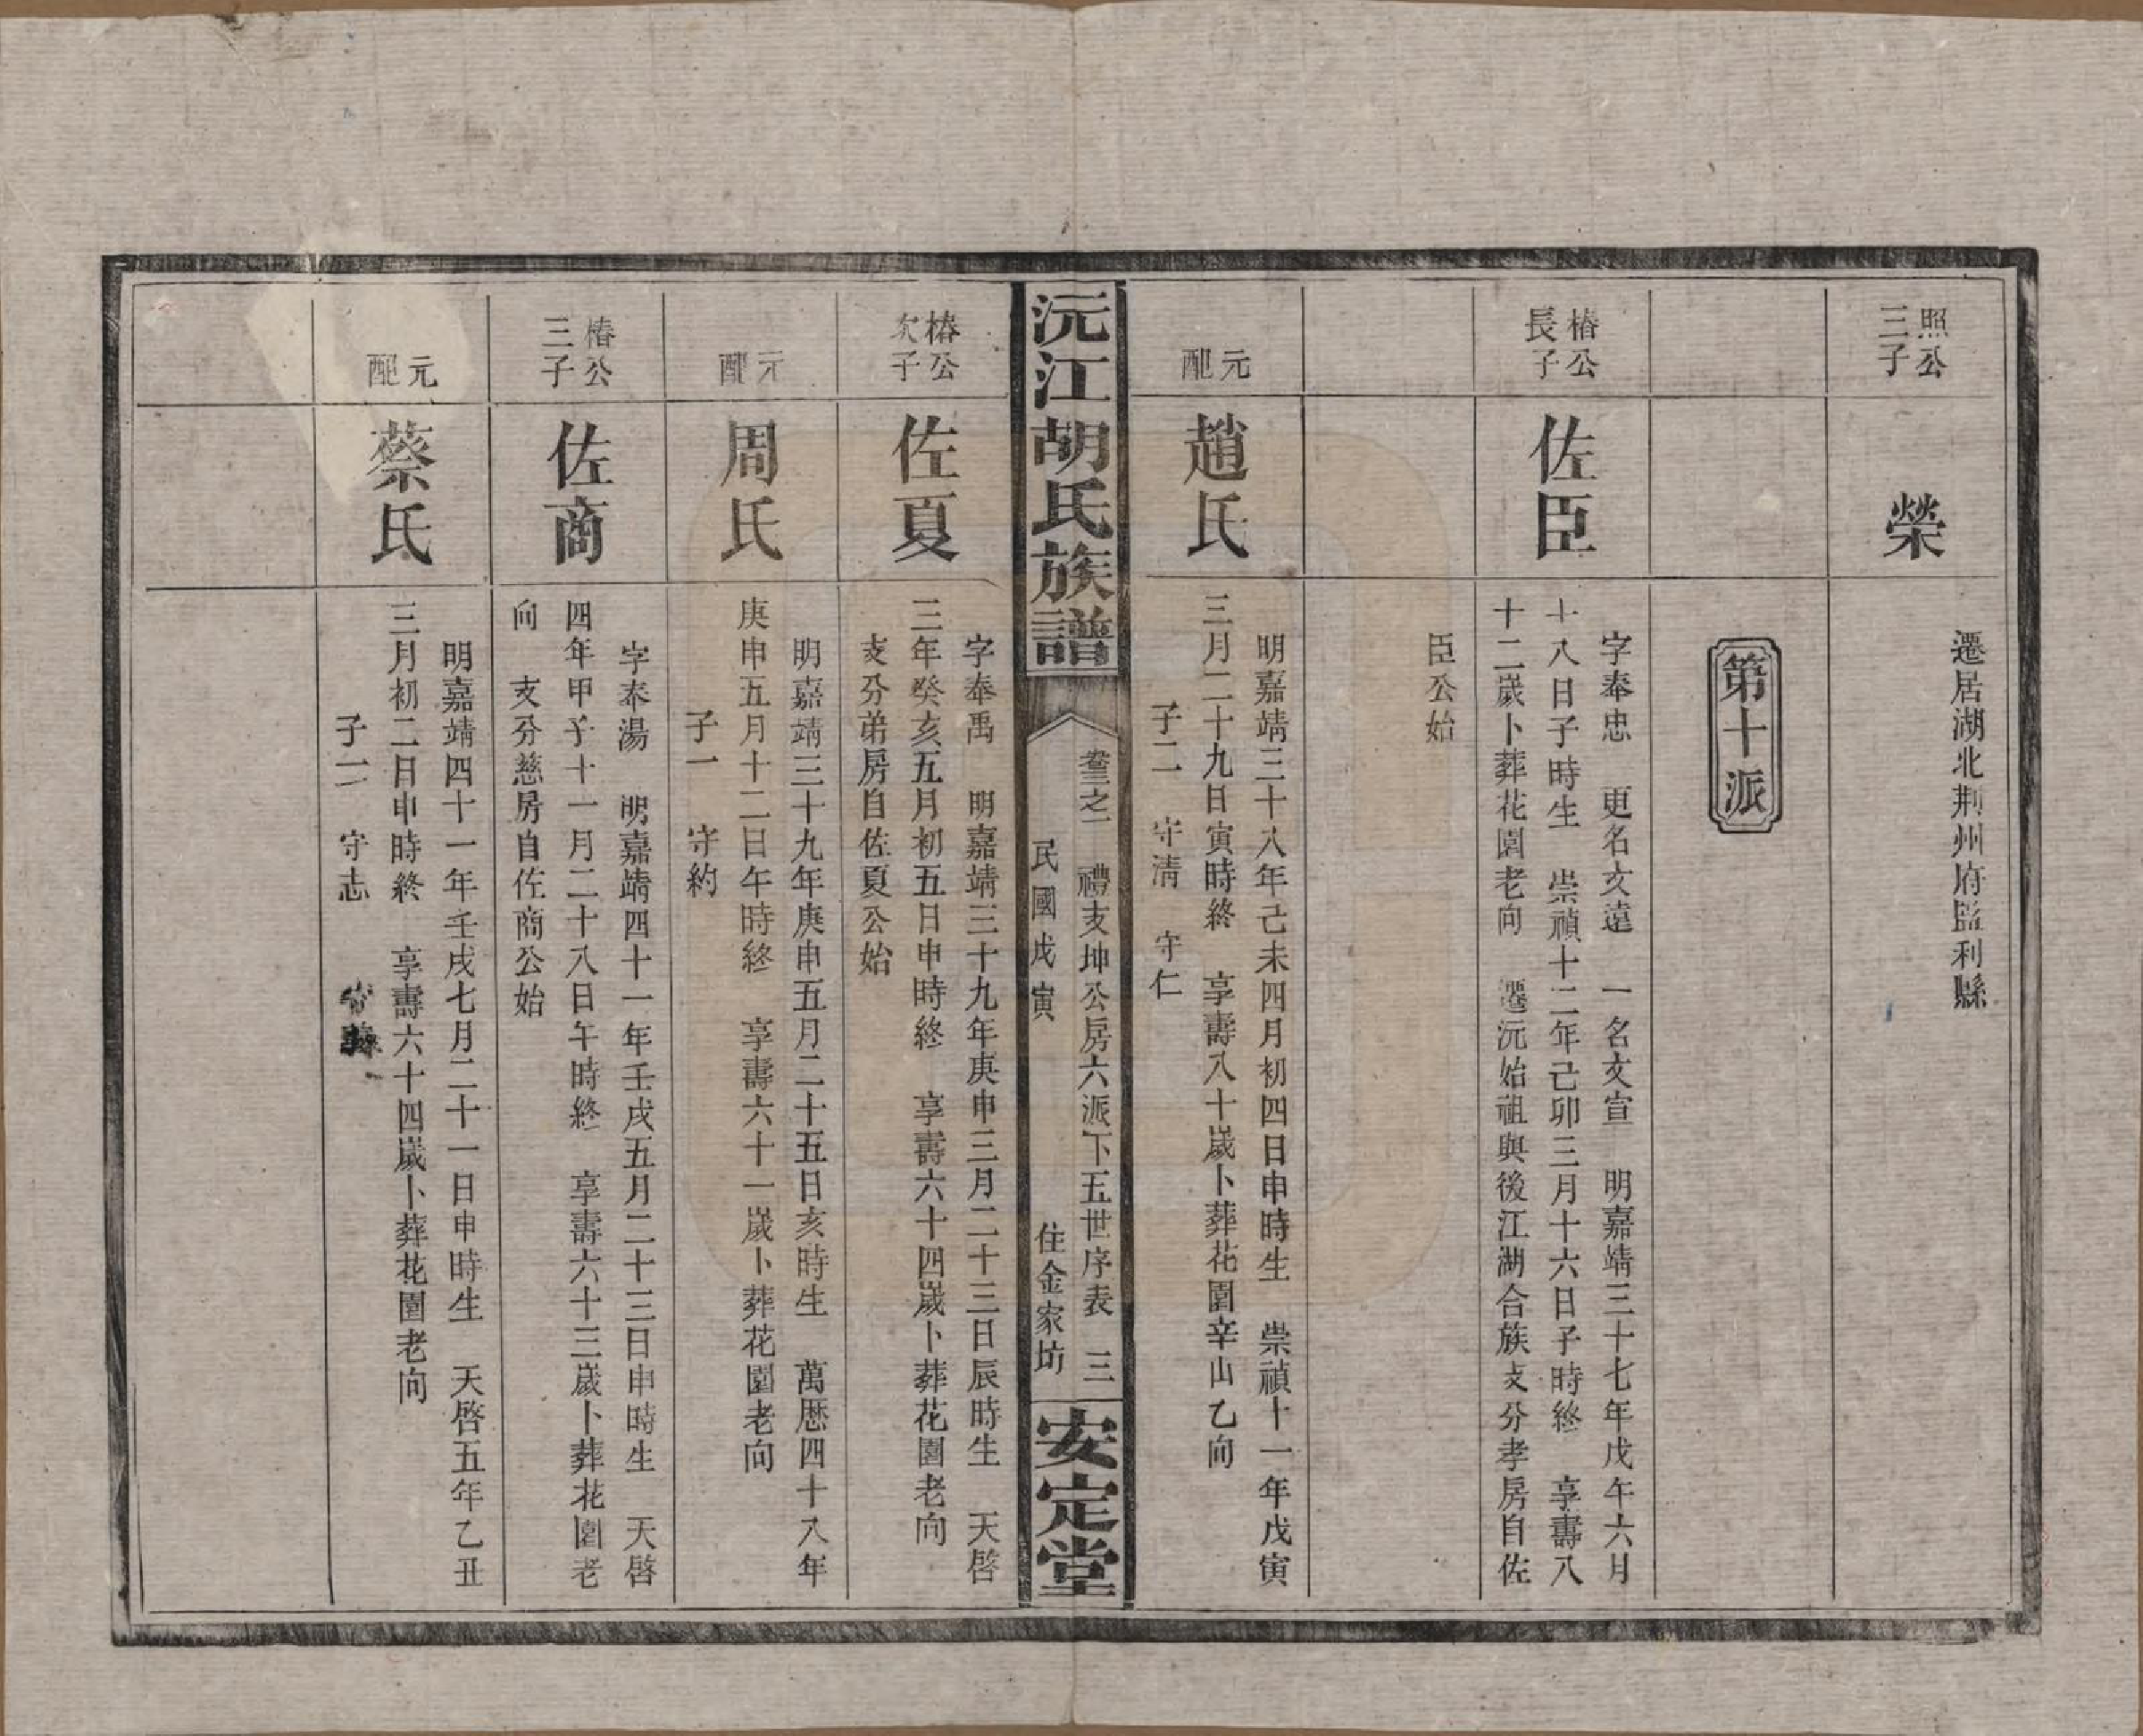 照公
三子
榮
遷居湖北荆州府監利縣
第十派
椿公
長子
佐臣
字奉忠　更名文遠　一名文宣　明嘉靖三十七年戊午六月
十八日子時生　崇禎十二年己卯三月十六日子時終　享壽八
十二歲卜葬花園老向　遷沅始祖與後江湖合族支分孝房自佐
臣公始
元
配
趙氏
明嘉靖三十八年己未四月初四日申時生　崇禎十一年戊寅
三月二十九日寅時終　享壽八十歲卜葬花園辛山乙向
子二　守淸　守仁
沅江胡氏族譜
卷三之一　禮支坤公房六派下五世序表　三
民國戊寅　住金家坊
安定堂
椿公
次子
佐夏
字奉禹　明嘉靖三十九年庚申三月二十三日辰時生　天啓
三年癸亥五月初五日申時終　享壽六十四歲卜葬花園老向
支分弟房自佐夏公始
元
配
周氏
明嘉靖三十九年庚申五月二十五日亥時生　萬歷四十八年
庚申五月十二日午時終　享壽六十一歲卜葬花園老向
子一　守約
椿公
三子
佐商
字奉湯　明嘉靖四十一年壬戌五月二十三日申時生　天啓
四年甲子十一月二十八日午時終　享壽六十三歲卜葬花園老
向　支分慈房自佐商公始
元
配
蔡氏
明嘉靖四十一年壬戌七月二十一日申時生　天啓五年乙丑
三月初二日申時終　享壽六十四歲卜葬花園老向
子二　守志